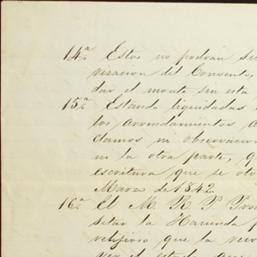 14ª Estos no podrán
veracion del Convento,
dar el monte sin esta
15ª Estando liquidadas
los arrendamientos
damos ni observacion
ni la otra parte, q
escritura que se oto
Marzo de 1842
16ª El M. R. P. Pro
setar la Hacienda
religioso que la reco